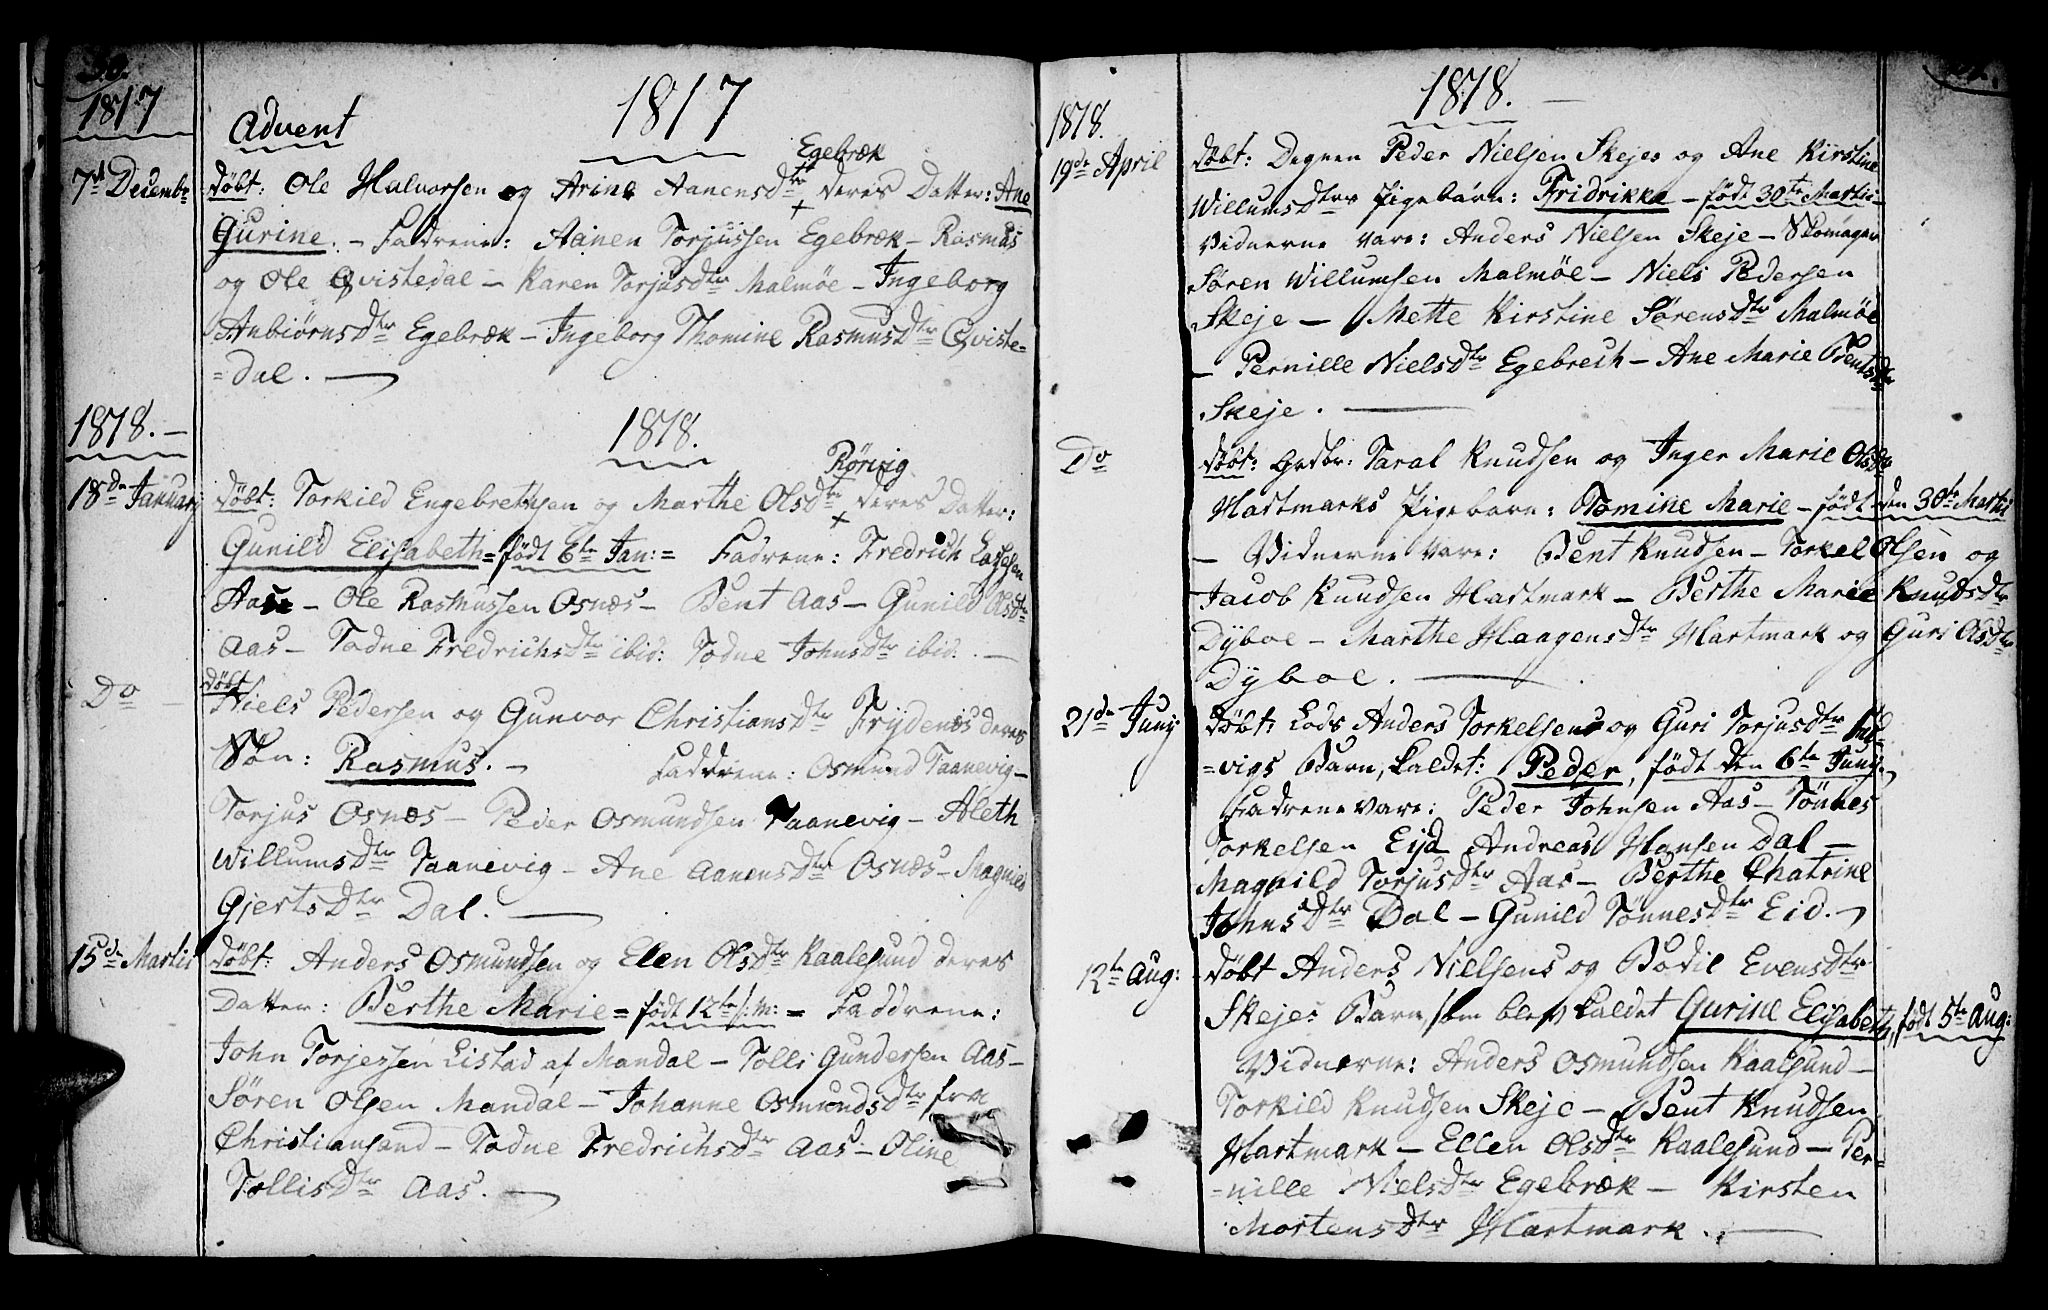 30.
1817
Advent
1817
7de Decembr
Egebræk
Døbt: Ole Halvorsen og Arine Aanensdtr + deres Datter: Ane
Gurine. – Faddrene: Aanen Torjussen Egebræk – Rasmus
og Ole Qvistedal – Karen Torjusdtr Malmöe – Ingeborg
Anbiørnsdtr Egebræk – Ingeborg Thomine Rasmusdtr Qviste=
=dal.
1818.
1818.
18de Januarj
Rörvig
Døbt: Torkild Engebrethsen og Marthe Olsdtr + deres Datter:
Gunild Elisabeth = født 6te Jan: = Fadrene: Fredrich
Aas – Ole Rasmussen Osnæs – Bent Aas – Gunild Olsdtr
Aas – Todne Fredrichsdtr ibid: Todne Johnsdtr ibid. –
Do
Døbt
Niels Pedersen og Gunvor Christiansdtr Frydenæs deres
Søn: Rasmus. – Faddrene: Osmund Taanevig –
Torjus Osnæs – Peder Osmundsen Taanevig – Aleth
Willumsdtr Taanevig – Ane Aanensdtr Osnæs – Magnild
Gjertsdtr Dal.
15de Martii
Døbt: Anders Osmundsen og Elen Olsdtr Kaalesund deres
Datter: Berthe Marie = født 12te s. m: = Faddrene:
John Torjessen Listad af Mandal – Tolli Gundersen Aas –
Søren Olsen Mandal – Johanne Osmundsdtr fra
Christiansand – Todne Fredrichsdtr Aas – Oline
Tollisdtr Aas.
1818.
1818.
19de April
Døbt: Degnen Peder Nielsen Skejes og Ane Kirstine
Willumsdtrs Pigebarn: Fridrikke – født 30te Martii –
Vidnerne vare: Anders Nielsen Skeje – Skomager
Søren Willumsen Malmöe – Niels Pedersen
Skeje – Mette Kirstine Sørensdtr Malmöe
– Pernille Nielsdtr Egebrech – Ane Marie Bentsdtr
Skeje.
Do
Døbt: Grdbr: Taral Knudsen og Inger Marie Olsdtr
Hartmarks Pigebarn: Tomine Marie – født den 30te Martii
– Vidnerne vare: Bent Knudsen – Torkel Olsen og
Jacob Knudsen Hartmark – Berthe Marie Knudsdtr
Dyboe – Marthe Haagensdtr Hartmark og Guri Olsdtr
Dyboe.
21de Junij
Døbt: Lods Anders Torkelsens og Guri Torjusdtr
=vigs Barn, kaldet: Peder, født den 6te Junij
Fadrene vare: Peder Johnsen Aas – Tönnes
Torkelsen Eijd Andreas Hansen Dal –
Magnild Torjusdtr Aas – Berthe Chatrine
Johnsdtr Dal – Gunild Tönnesdtr Eid. –
12te Aug:
Døbt Anders Nielsens og Bodil Evensdtr
Skejes Barn, som blev kaldet Gurine Elisabeth, født 5te Aug:
Vidnerne: Anders Osmundsen Kaalsund –
Torkild Knudsen Skeje – Bent Knudsen
Hartmark – Ellen Olsdtr Kaalesund – Per=
=nille Nielsdtr Egebræk – Kirsten
Mortensdtr Hartmark.